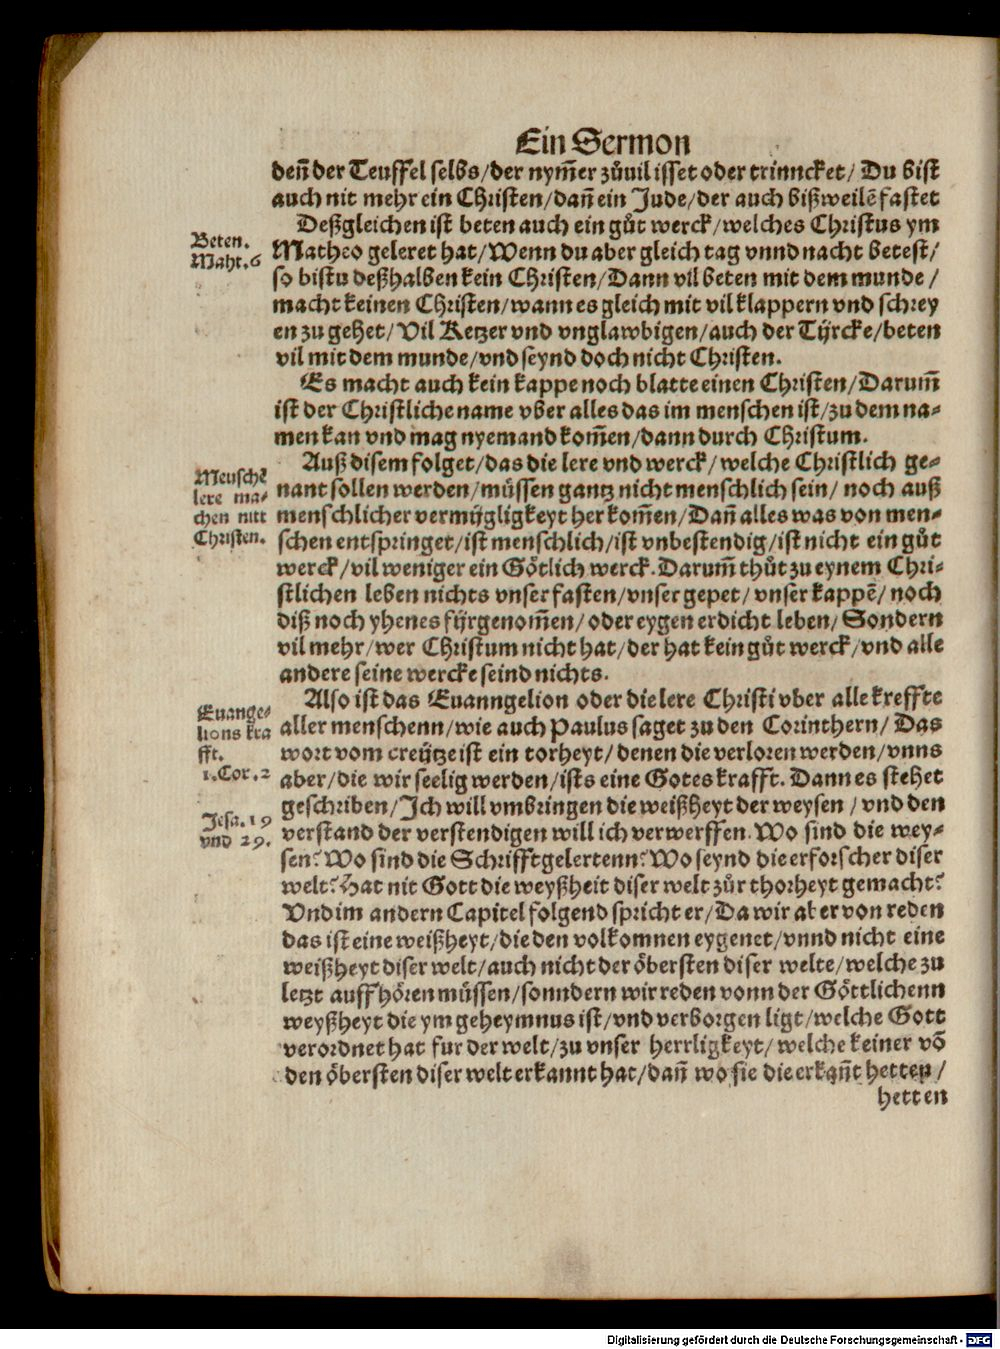 Ein Sermon
deñ der Teuffel selbs/der nym̃er zůuil isset oder trinncket/ Du bist
auch nit mehr ein Christen/dañ ein Jude/der auch bißweilẽ fastet
Deßgleichen ist beten auch ein gůt werck/welches Christus ym
Matheo geleret hat/Wenn du aber gleich tag vnnd nacht betest/
so bistu deßhalben kein Christen/Dann vil beten mit dem munde/
macht keinen Christen/wann es gleich mit vil klappern vnd schrey
en zu gehet/Vil Ketzer vnd vnglawbigen/auch der Tÿrcke/beten
vil mit dem munde/vnd seynd doch nicht Christen.
Es macht auch kein kappe noch blatte einen Christen/Darum̃
ist der Christliche name vber alles das im menschen ist/zu dem na-
men kan vnd mag nyemand kom̃en/dann durch Christum.
Auß disem folget/das die lere vnd werck/welche Christlich ge-
nant sollen werden/müssen gantz nicht menschlich sein/ noch auß
menschlicher vermügligkeyt her kom̃en/Dañ alles was von men-
schen entspringet/ist menschlich/ist vnbestendig/ist nicht ein gůt
werck/vil weniger ein Götlich werck. Darum̃ thůt zu eynem Chri-
stlichen leben nichts vnser fasten/vnser gepet/vnser kappẽ/noch
diß noch yhenes fÿrgenom̃en/oder eygen erdicht leben/Sondern
vil mehr/wer Christum nicht hat/der hat kein gůt werck/vnd alle
andere seine wercke seind nichts.
Also ist das Euanngelion oder die lere Christi vber alle kreffte
aller menschenn/wie auch Paulus saget zu den Corinthern/Das
wort vom creütze ist ein torheyt/denen die verloren werden/vnns
aber/die wir seelig werden/ists eine Gotes krafft. Dann es stehet
geschriben/Ich will vmbringen die weißheyt der weysen/vnd den
verstand der verstendigen will ich verwerffen. Wo sind die wey-
sen? Wo sind die Schrifftgelertenn? Wo seynd die erforscher diser
welt? Hat nit Gott die weyßheit diser welt zůr thorheyt gemacht?
Vnd im andern Capitel folgend spricht er/Da wir aber von reden
das ist eine weißheyt/die den volkomnen eygenet/vnnd nicht eine
weißheyt diser welt/auch nicht der öbersten diser welte/welche zu
letzt auffhören müssen/sonndern wir reden vonn der Göttlichenn
weyßheyt die ym geheymnus ist/vnd verborgen ligt/welche Gott
verordnet hat fur der welt/zu vnser herrligkeyt/welche keiner võ
den öbersten diser welt erkannt hat/dañ wo sie die erkañt hetten/
hetten
Beten.
Maht.6
Menschẽ
lere ma-
chen nitt
Christen.
Euange-
lions kra
fft.
1.Cor.2
Jesa.19
vnd 29.
Digitalisierung gefördert durch die Deutsche Forschungsgemeinschaft - DFG